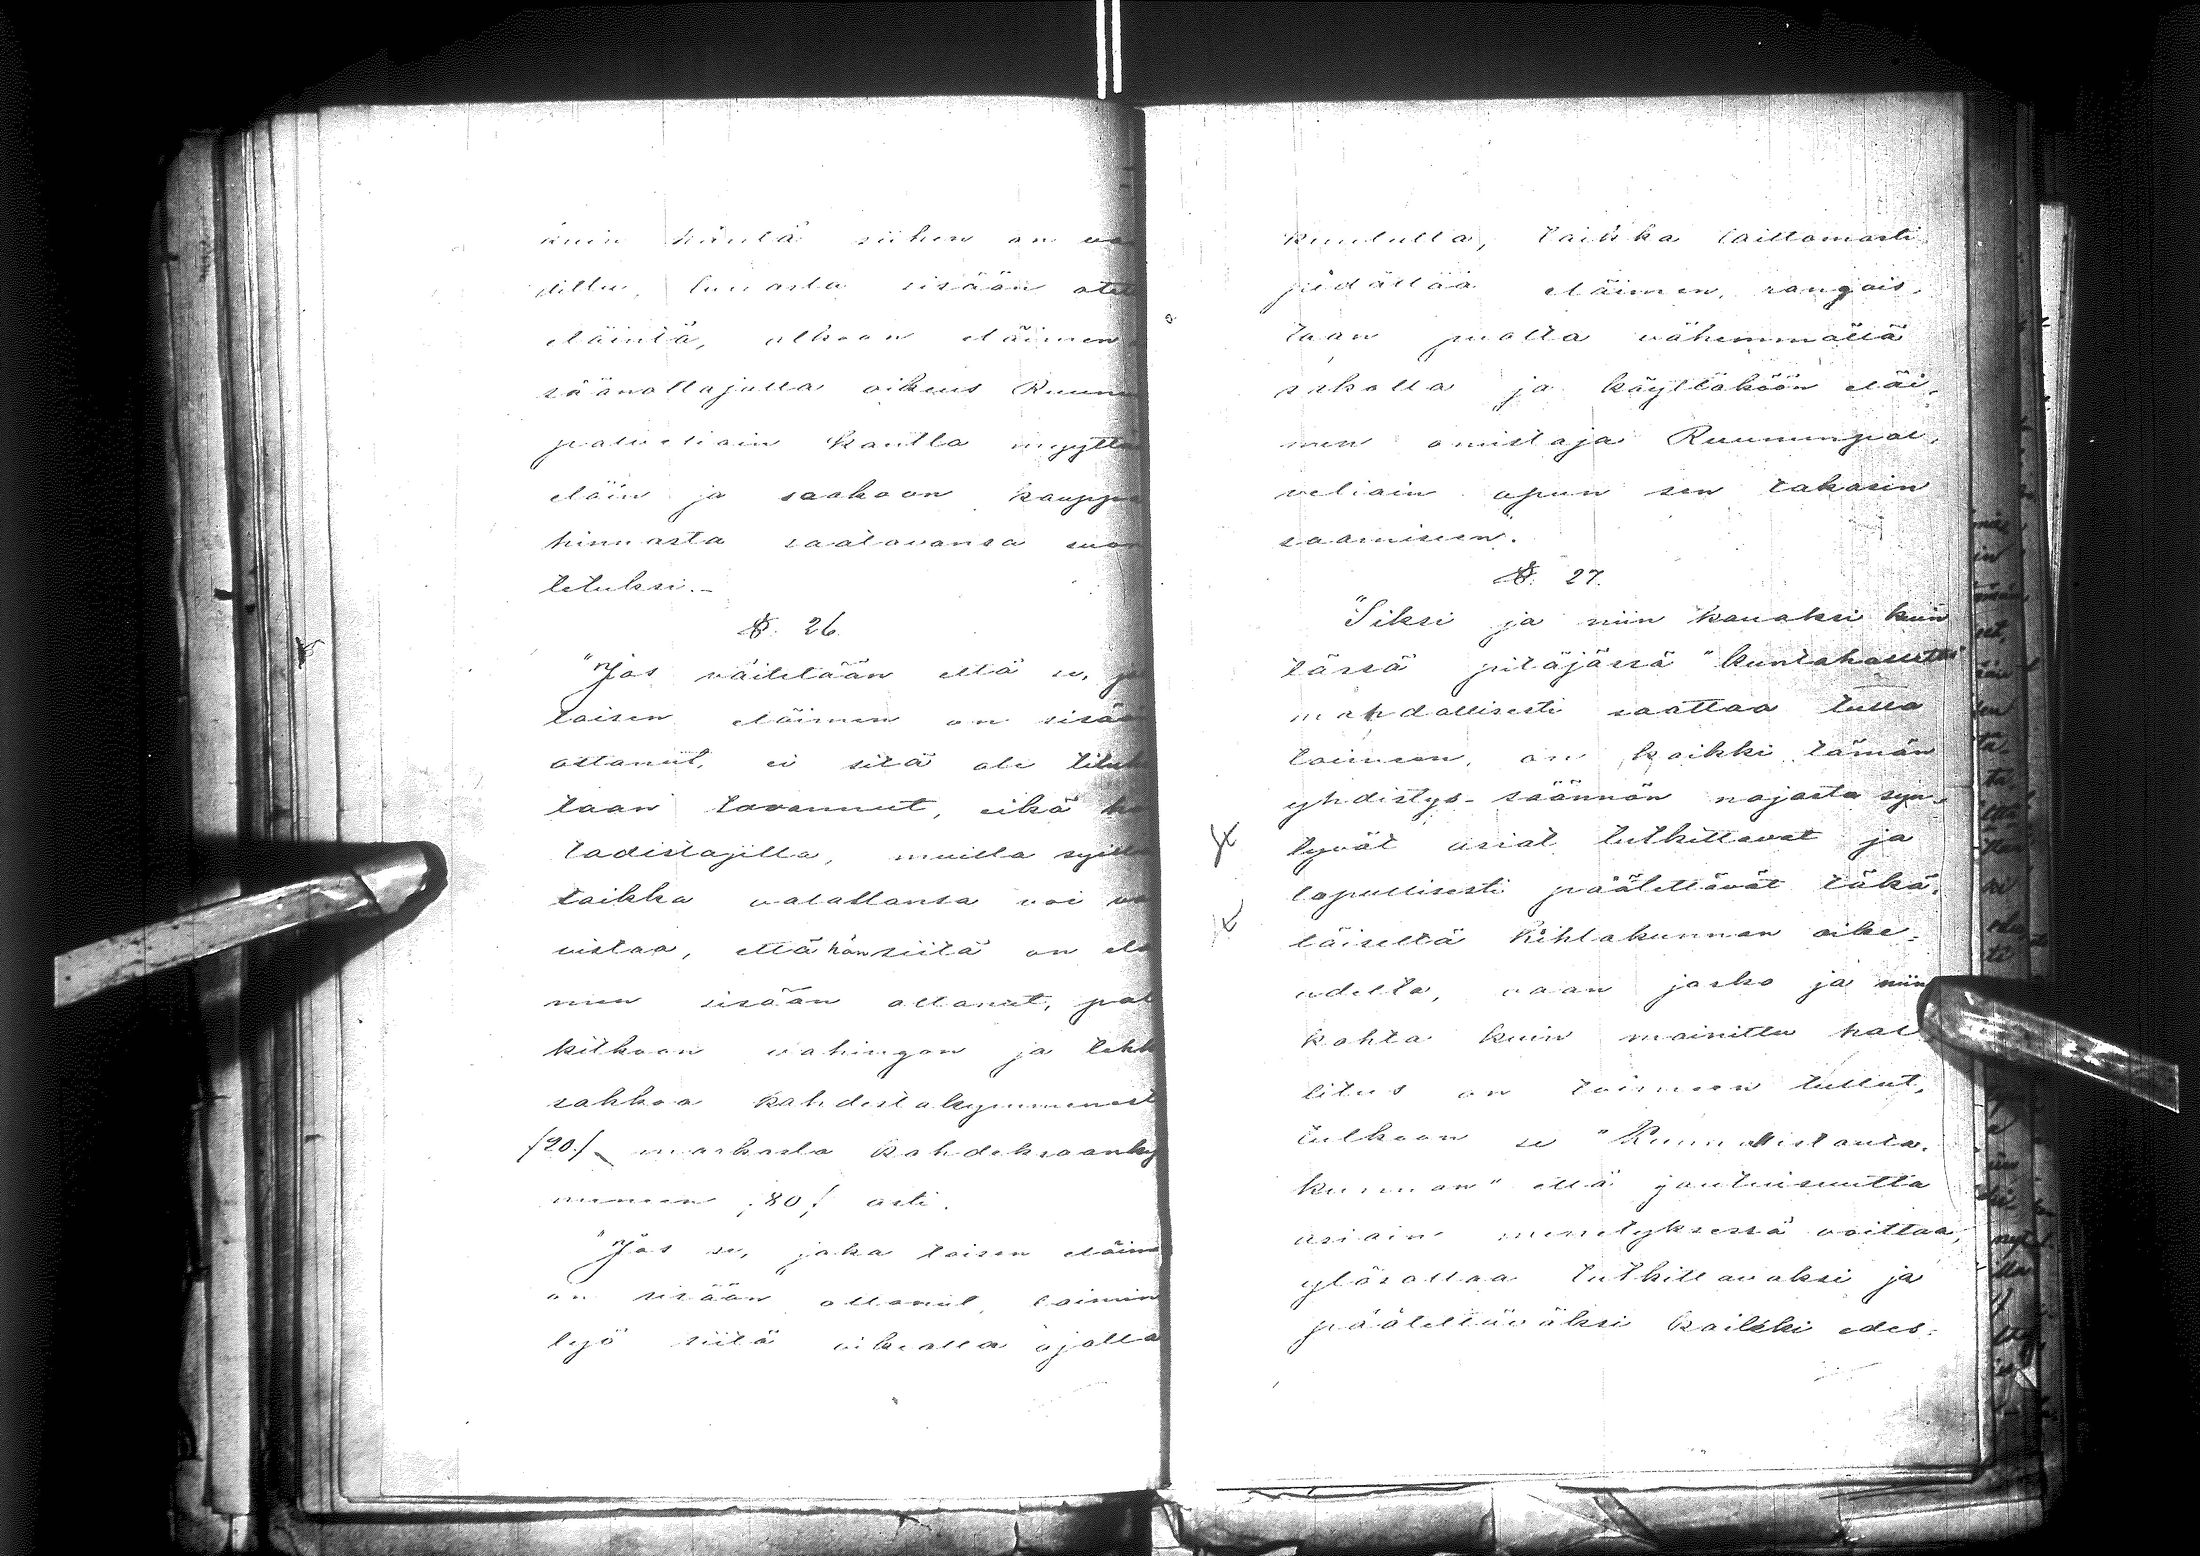 kuin häntä siihen on va
dittu, lunasta sisään otet
eläintä, olkoon eläimen
säänottajalla oikeus Ruunu
palveliain kautta myyttä
eläin ja saakoon kauppa
hinnasta saatavansa suori
tetuksi.-
§. 26.
"Jos väitetään että se, jo
toisen eläimen on sisää
ottanut, ei sitä ole tiluk
taan tavannut, eikä ko
todistajilla, muilla syill
taikka valallansa voi va
vistaa, että hän siitä on elä
men sisään ottanut, pal
kitkoon vahingon ja vetäk
sakkoa kahdestakymmenest
/20./ markasta kahdeksaanky
meneen /80/ asti.
"Jos se, joka toisen eläime
on sisään ottanut, laimin
lyö siitä oikealla ajalla
kuulutta, taikka laittomasti
pidättää eläimen, rangais,
taan puolta vähemmällä
sakolla ja käyttäköön eläi,
men omistaja Ruununpal,
veliain apun sen takasin
saamiseen.
§. 27.
"Siksi ja niin kauaksi kuin
tässä pitäjässä "kuntahallitus"
mahdollisesti saattaa tulla
toimeen, on kaikki tämän
yhdistys-säännön nojasta syn-
tyvät asiat tutkittavat ja
lopullisesti päätettävät täkä,
läiseltä Kihlakunnan oike=
udelta, vaan josko ja niin
kohta kuin mainittu hal
litus on toimeen tullut,
tulkoon se "Kunnallistauta.
kunnan" että joutuisuutta
asiain menetyksessä voittaa,
ylösottaa tutkittavaksi ja
päätettäväksi kaikki edes=